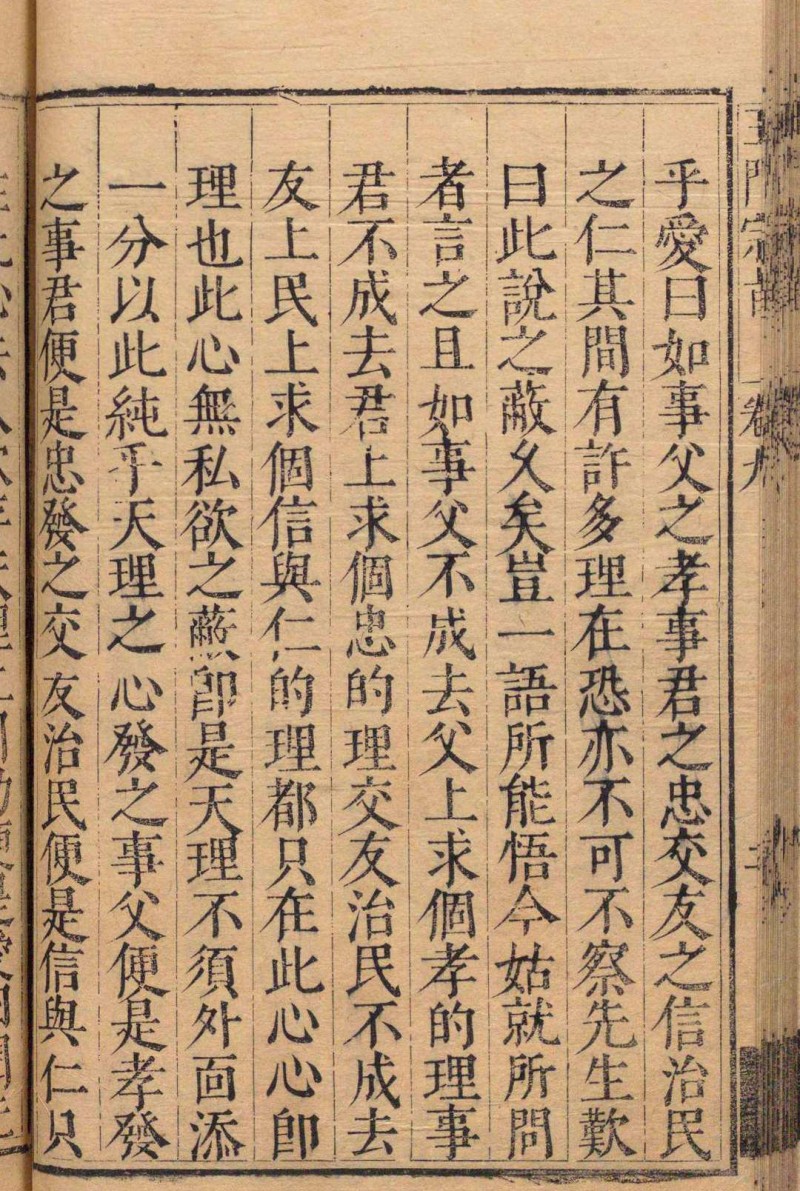 王門宗旨 卷九
乎愛曰如事父之孝事君之忠交友之信治民
之仁其間有許多理在恐亦不可不察先生歎
曰此說之蔽久矣豈一語所能悟今姑就所問
者言之且如事父不成去父上求個孝的理事
君不成去君上求個忠的理交友治民不成去
友上民上求個信與仁的理都只在此心心即
理也此心無私欲之蔽即是天理不須外面添
一分以此純乎天理之心發之事父便是孝發
之事君便是忠發之交友治民便是信與仁只